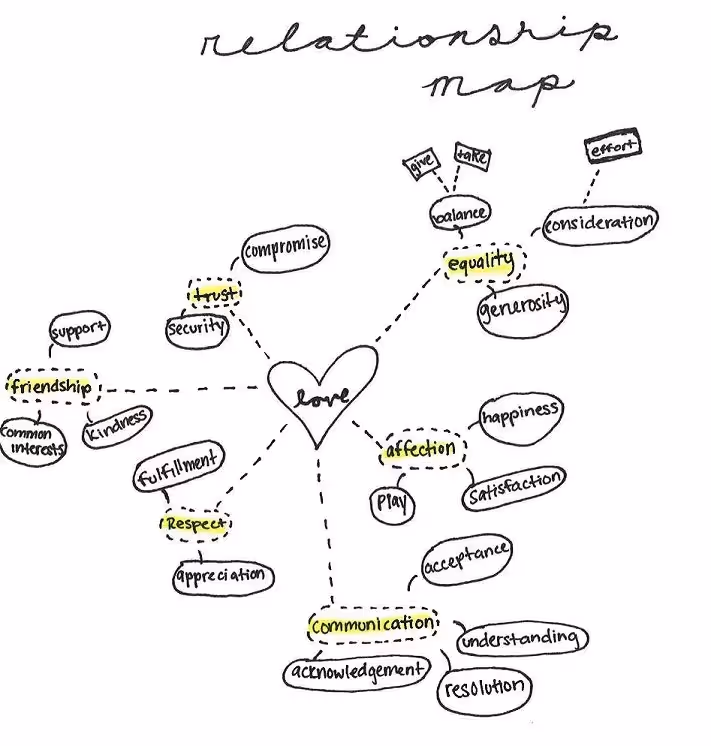 relationship
map
give
take
effort
balance
consideration
compromise
equality
trust
generosity
security
support
friendship
love
common
interests
kindness
happiness
affection
fulfillment
satisfaction
play
Respect
acceptance
appreciation
communication
understanding
acknowledgement
resolution